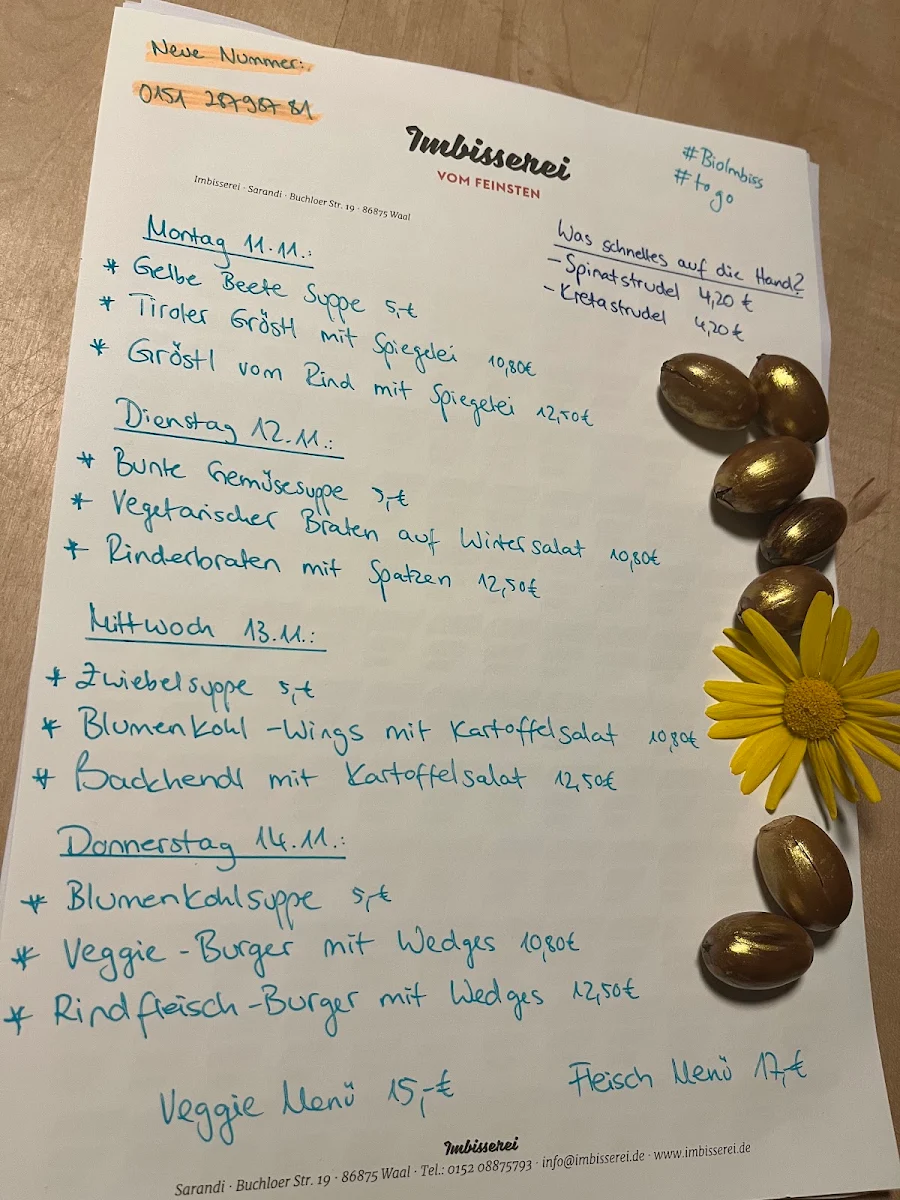 Neue Nummer:
0151 28798781
Imbisserei
VOM FEINSTEN
#BioImbiss
#to go
Imbisserei · Sarandi · Buchloer Str. 19 · 86875 Waal
Was schnelles auf die Hand?
- Spinatstrudel 4,20 €
- Kretastrudel 4,20 €
Montag 11.11.:
* Gelbe Beete Suppe 5,-€
* Tiroler Gröstl mit Spiegelei 10,80€
* Gröstl vom Rind mit Spiegelei 12,50€
Dienstag 12.11.:
* Bunte Gemüsesuppe 5,-€
* Vegetarischer Braten auf Wintersalat 10,80€
* Rinderbraten mit Spatzen 12,50€
Mittwoch 13.11.:
* Zwiebelsuppe 5,-€
* Blumenkohl-Wings mit Kartoffelsalat 10,80€
* Backhendl mit Kartoffelsalat 12,50€
Donnerstag 14.11.:
* Blumenkohlsuppe 5,-€
* Veggie-Burger mit Wedges 10,80€
* Rindfleisch-Burger mit Wedges 12,50€
Veggie Menü 15,-€
Fleisch Menü 17,-€
Imbisserei
Sarandi · Buchloer Str. 19 · 86875 Waal · Tel.: 0152 08875793 · info@imbisserei.de · www.imbisserei.de